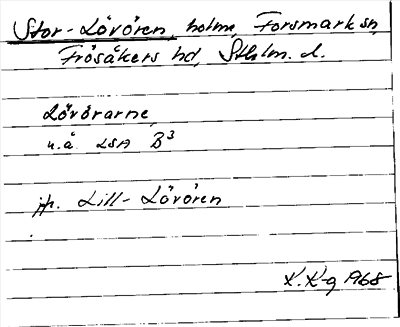 Stor-Lövören, holme, Forsmark sn,
Frösåkers hd, Sthlm. l.
Lövörarne
u.å. LSA B³
jfr. Lill-Lövören
K.K-g 1968